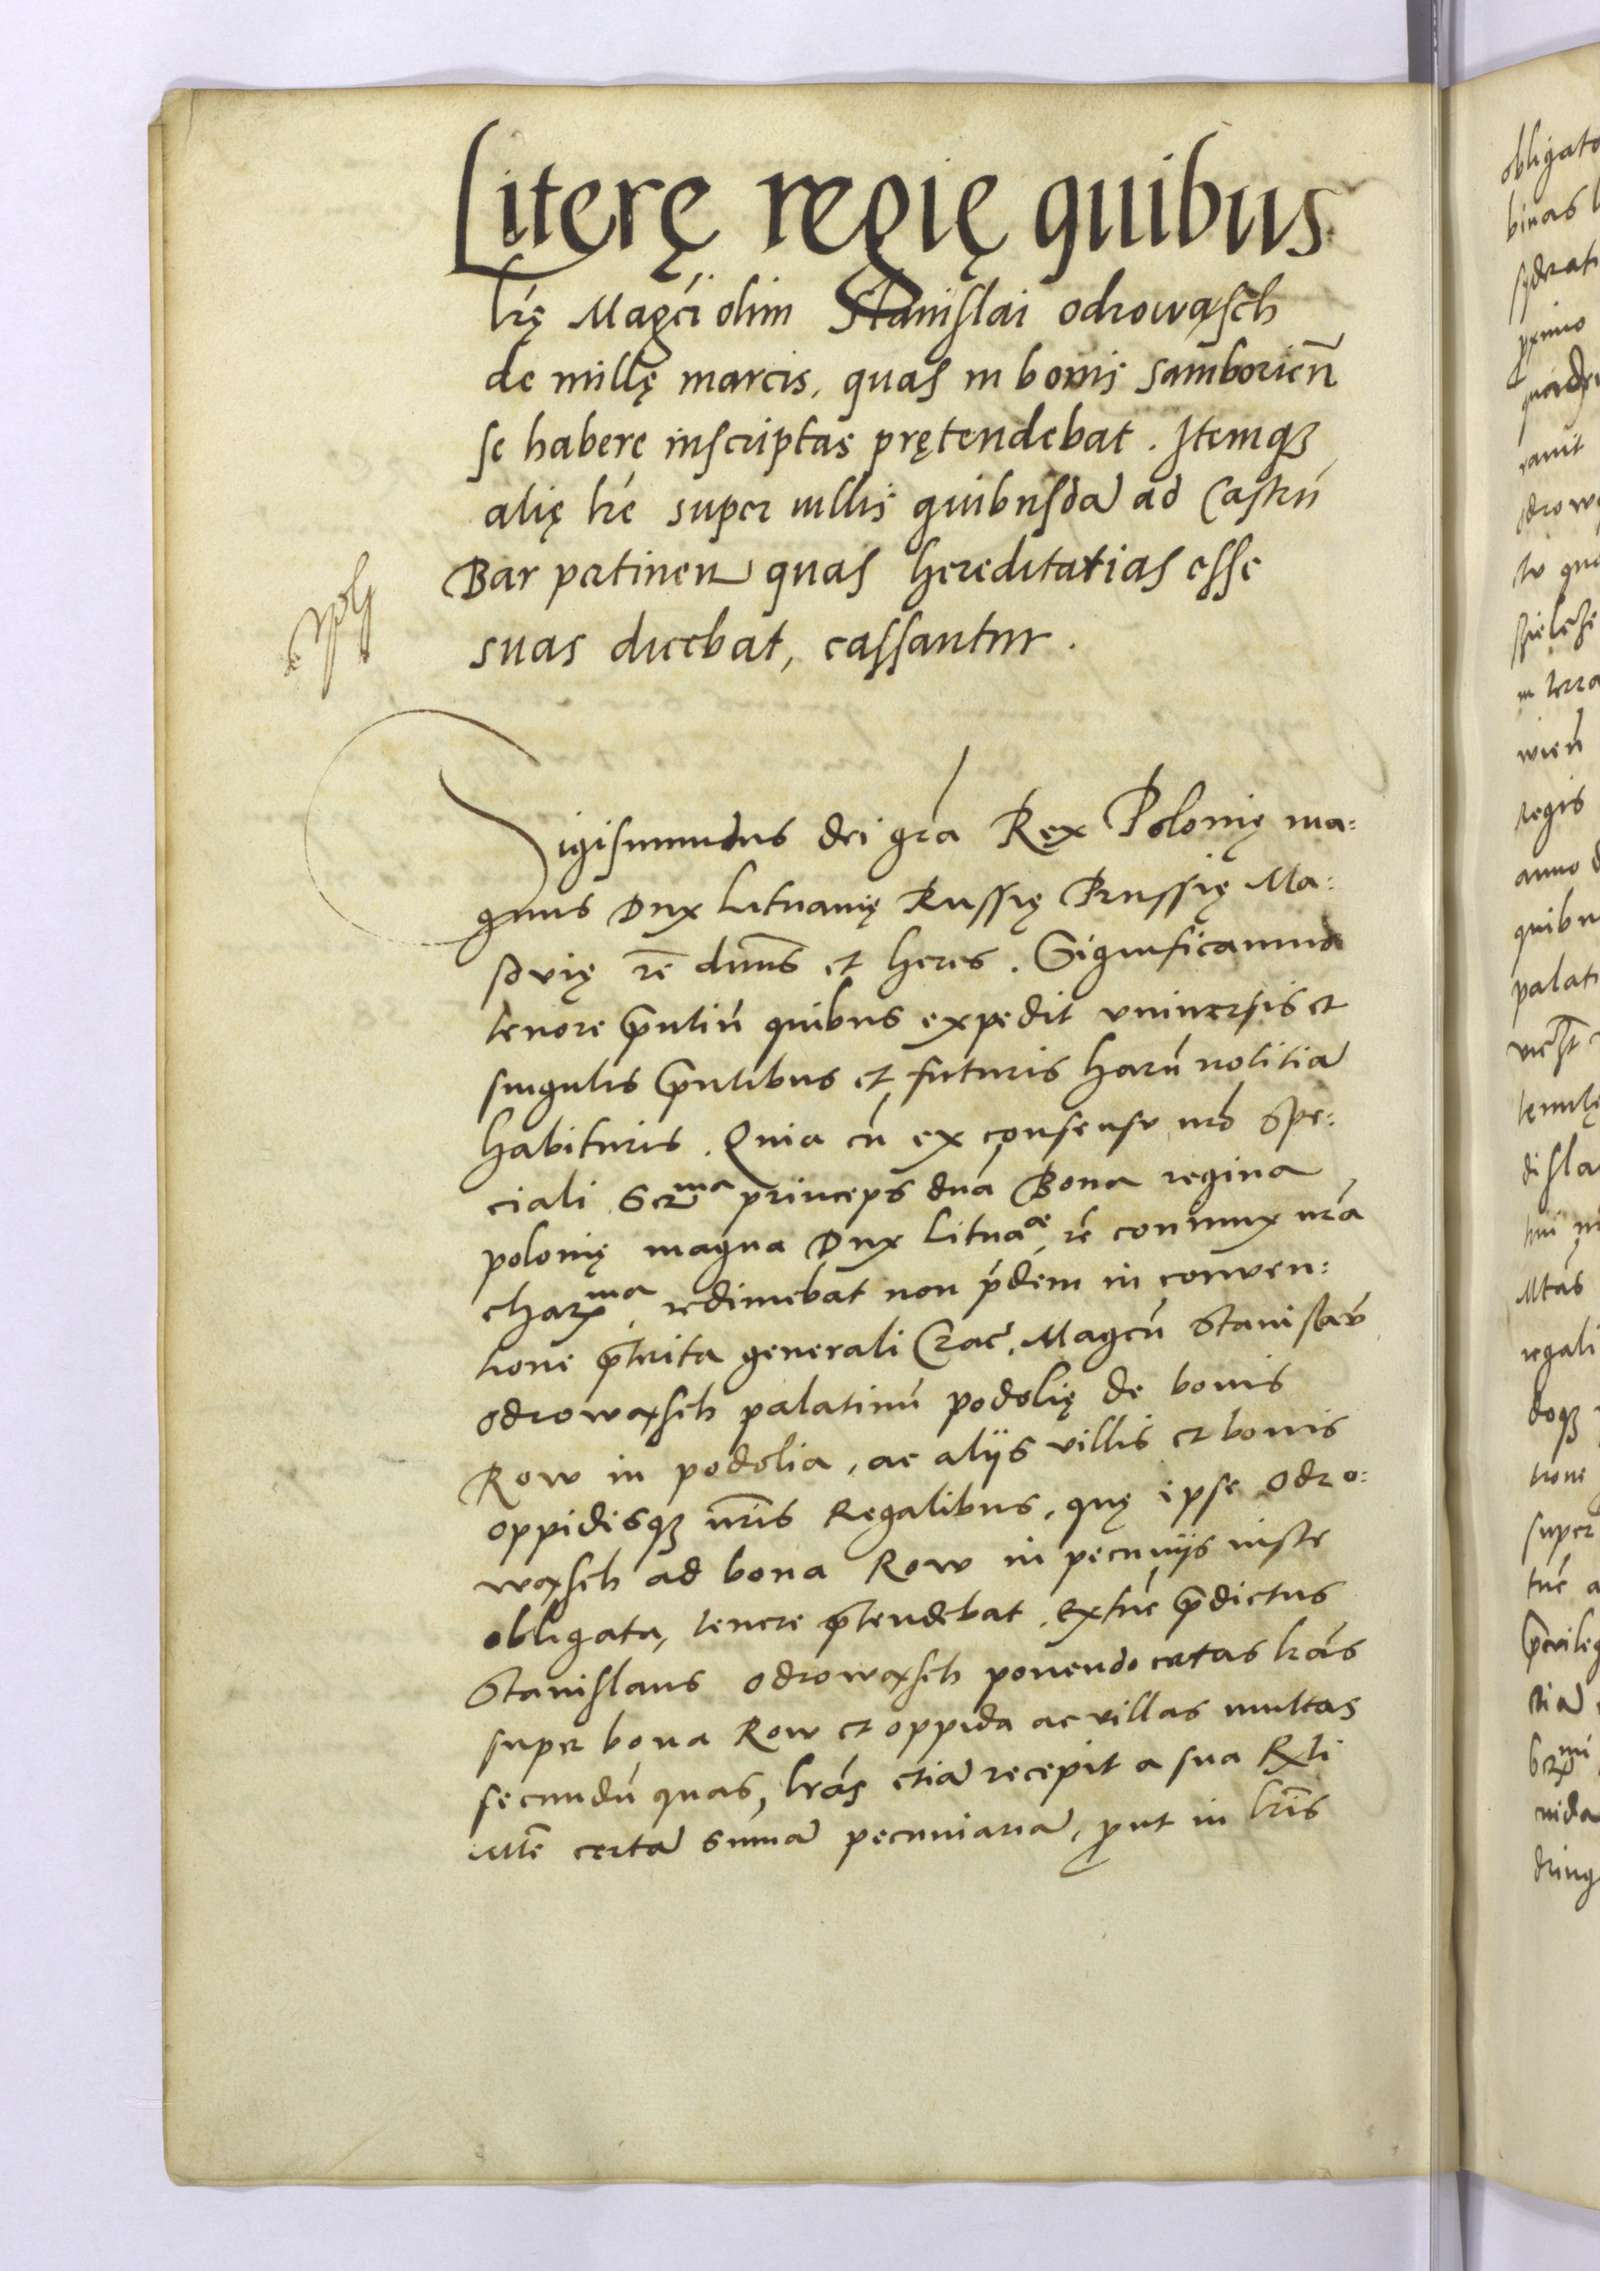 Literę regię quibus
lrę Magci olim Stanislai odrowąsch
de millę marcis, quas in bonis samborien̄
se habere inscriptas prętendebat. Itemqꝫ
alię lrę super villis quibusdā ad Castrū
Bar pertinen quas hereditarias esse
suas dicebat, cassantur.
Sigismundus dei gra Rex Polonię ma:
gnus Dux Lituanię Russię Prussię Ma:
sovię re dnns et heres. Significamus
tenore pntiū quibus expedit vniuersis et
singulis pntibus et futuris harū notitiā
habituris. Quia cū ex consensu nro spe:
ciali Serma princeps dna Bona regina
polonię magna Dux Lituaæ re coniunx nra
charma redimebat non pdem in conuen:
tione ptrita generali Crac. Magcū Stanislaū
odrowąsch palatinū podolię de bonis
Row in podolia, ac alijs villis et bonis
oppidisqꝫ nris Regalibus, quę ipse Odro:
wąsch ad bona Row in pecunijs iuste
obligata, tenere ptendebat, extūc pdictus
Stanislaus odrowąsch ponendo certas lras
super bona Row et oppida ac villas multas
secundū quas, lras etiā recepit a sua Rli
Mte certā summā pecuniariā, put in lris
obligato
binas
pximo
ranit
odrow
in terra
wien̄
regis
anno d
quibu
palati
Mtas
regali
doqꝫ
tione
super
tūc a
priuileg